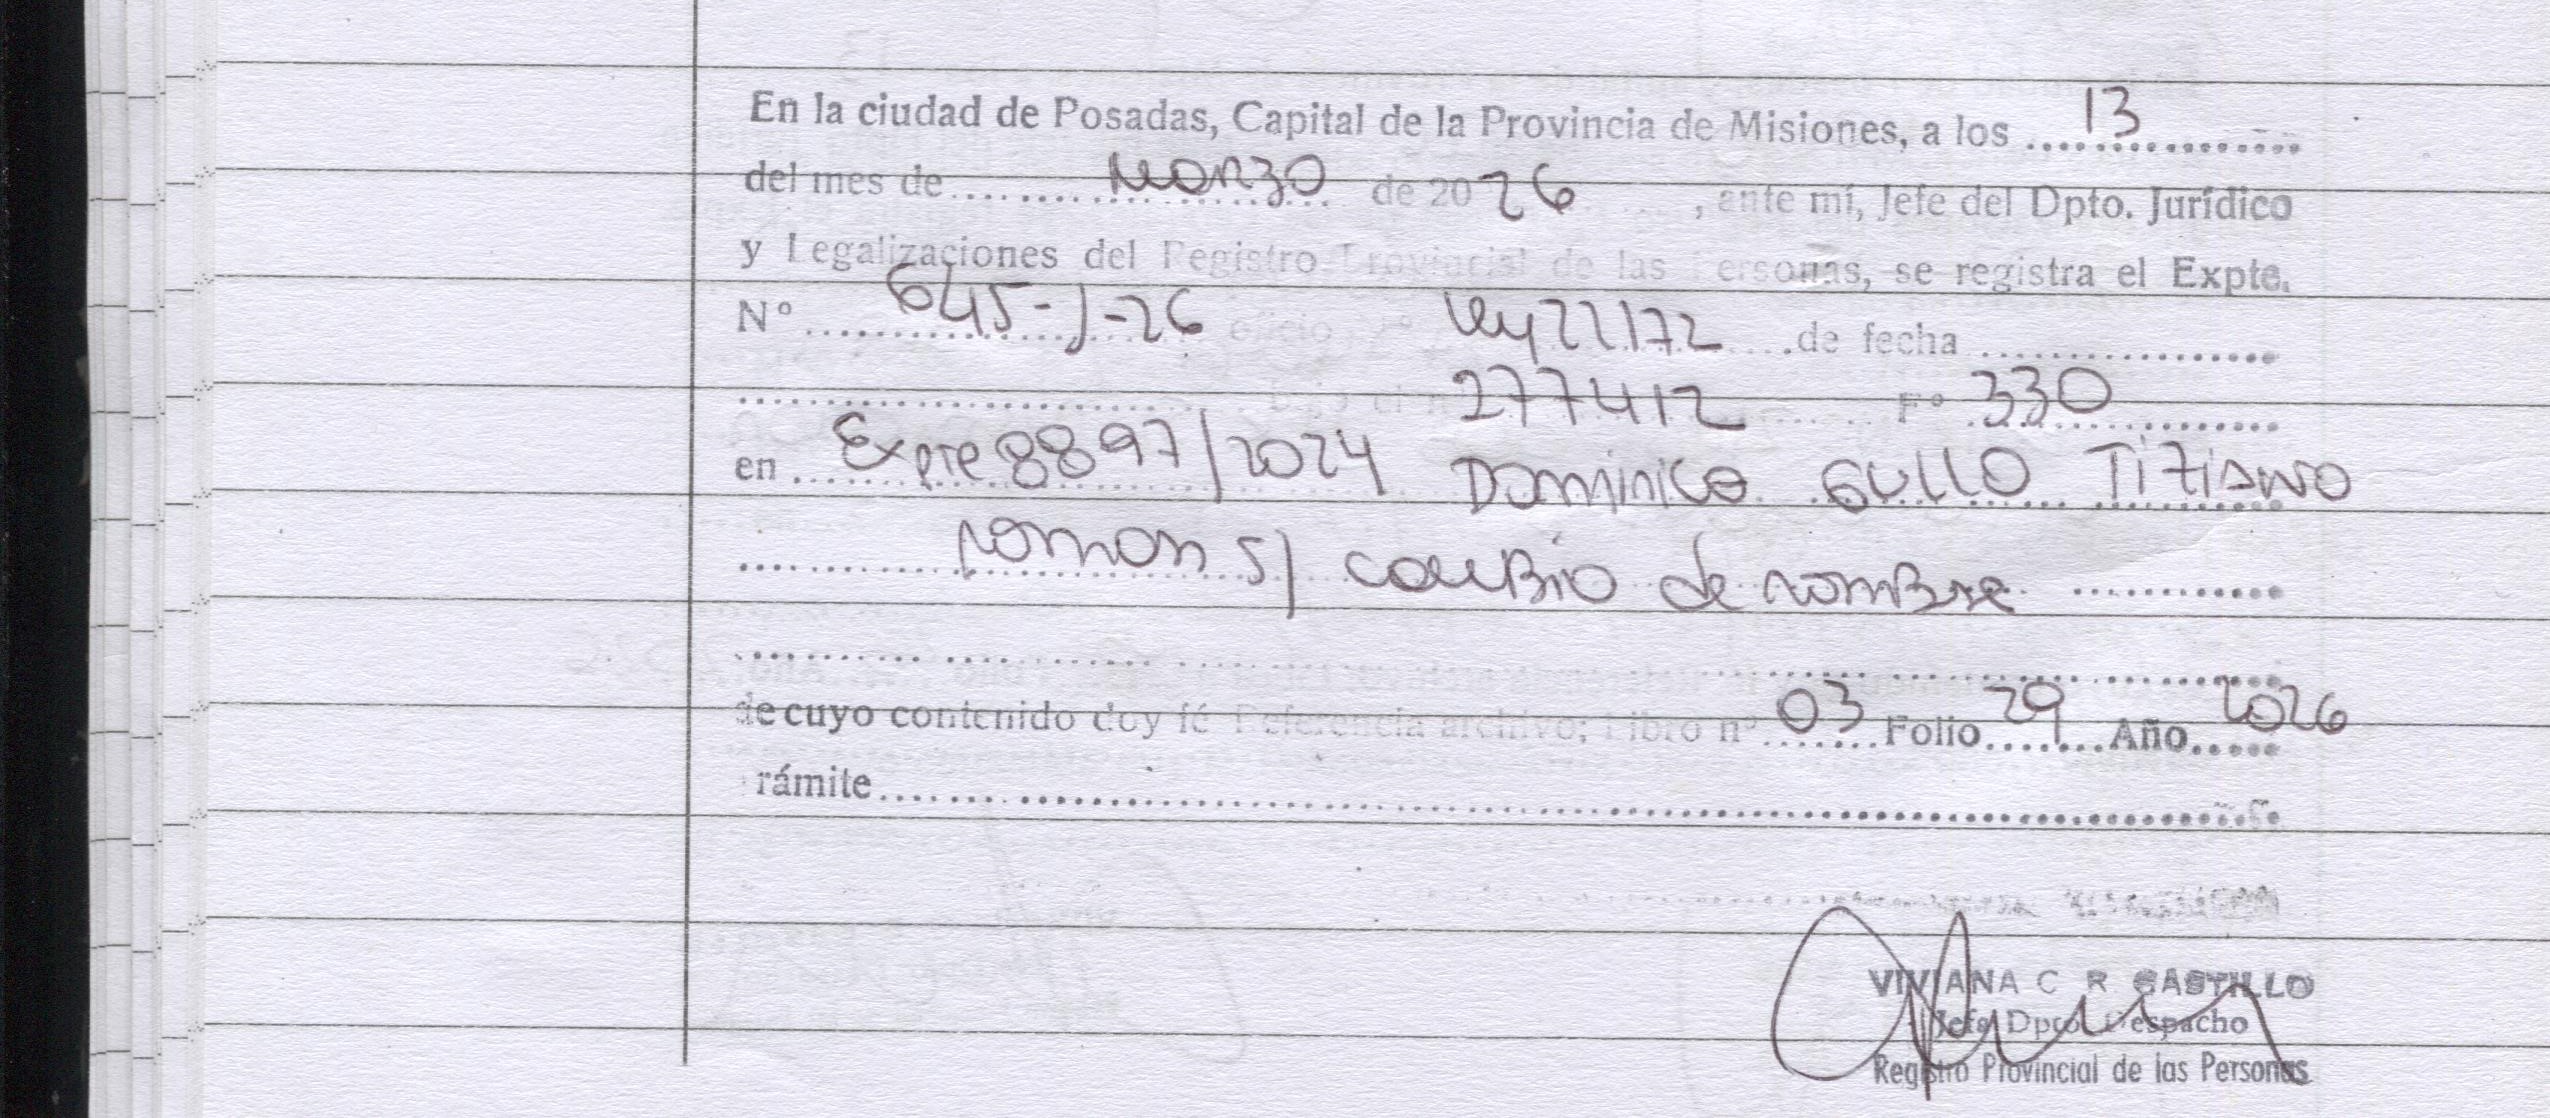 En la ciudad de Posadas, Capital de la Provincia de Misiones, a los 13
del mes de Marzo de 2026, ante mí, Jefe del Dpto. Jurídico
y Legalizaciones del Registro Provincial de las Personas, se registra el Expte.
Nº 645-J-26 oficio nº Ley 22172 de fecha
277412 Fº 330
en Expte 8897/2024 Dominico Gullo Tiziano
Roman s/ cambio de nombre
de cuyo contenido doy fé Referencia archivo; Libro nº 03 Folio 29 Año 2026
rámite
VIVIANA C R CASTILLO
Jefe Dpto. Despacho
Registro Provincial de las Personas